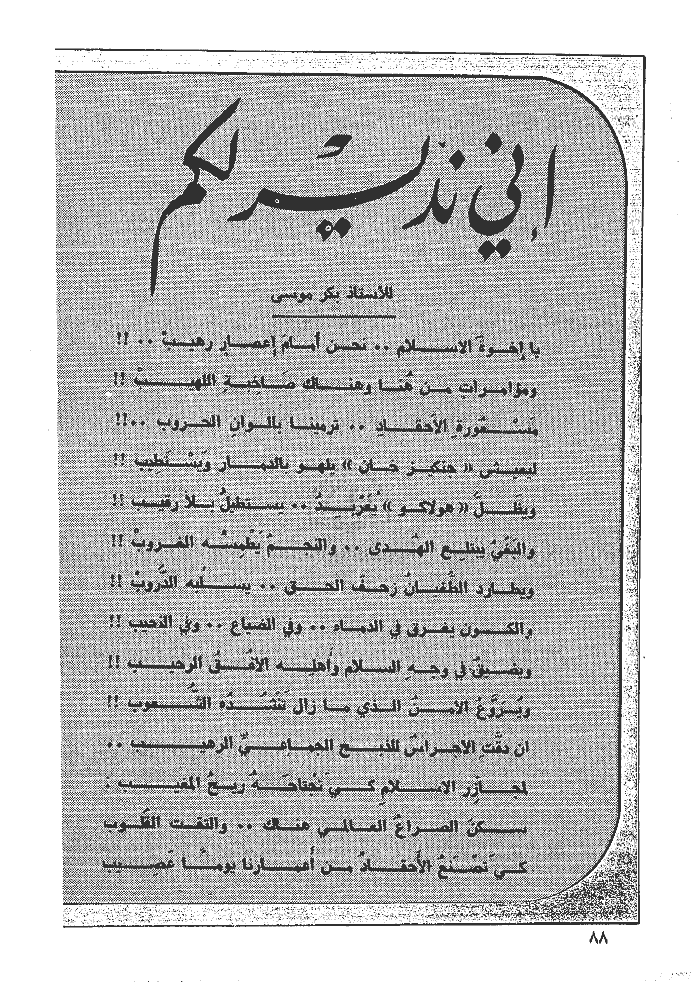 إني نذير لكم
للأستاذ بكر موسى
يا إخوة الاسلام .. نحن أمام إعصار رهيب .. !!
ومؤامرات من هُنا وهناك صَاخبة اللهيب !!
مَسْعُورة الأحقاد .. ترمينا بالوان الحروب ..!!
ليعيش « جنكيز خان » يلهو بالدمار وَيسْتَطيب !!
ويظل « هولاكو » يُعَرْبِدُ .. يستطيلُ بلا رقيب !!
والبَغْيُ يبتلع الهُدى .. والنجمُ يَطْمِسُه الغروبْ !!
ويطارد الطُغيانُ زحفَ الحق .. يسلُبه الدُّروبْ !!
والكون يغرق في الدماء .. وفي الضياع .. وفي النحيب !!
ويضيقُ في وجهِ السلام وأهلِه الأفُقُ الرحيب !!
ويُرَوَّعُ الامنُ الذي ما زال تَنْشُدُه الشُّعوب !!
ان دقَّتِ الأجراسُ للذبح الجماعيِّ الرهيب ..
لمجازر الاسلامِ كي تَجْتاحَهُ ريحُ المغيب :
سكنَ الصراعُ العالمي هناك .. والتقت القُلوب
كي تَصْنَعُ الأحقادُ من أعمارنا يومًا عَصيب
٨٨